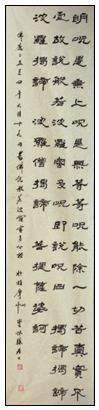 明呪是無上呪是無等等呪能除一切苦真實不
虛故說般若波羅蜜多呪即說呪曰揭諦揭諦
波羅揭諦波羅僧揭諦菩提薩婆訶
書佛說般若波羅蜜多心經